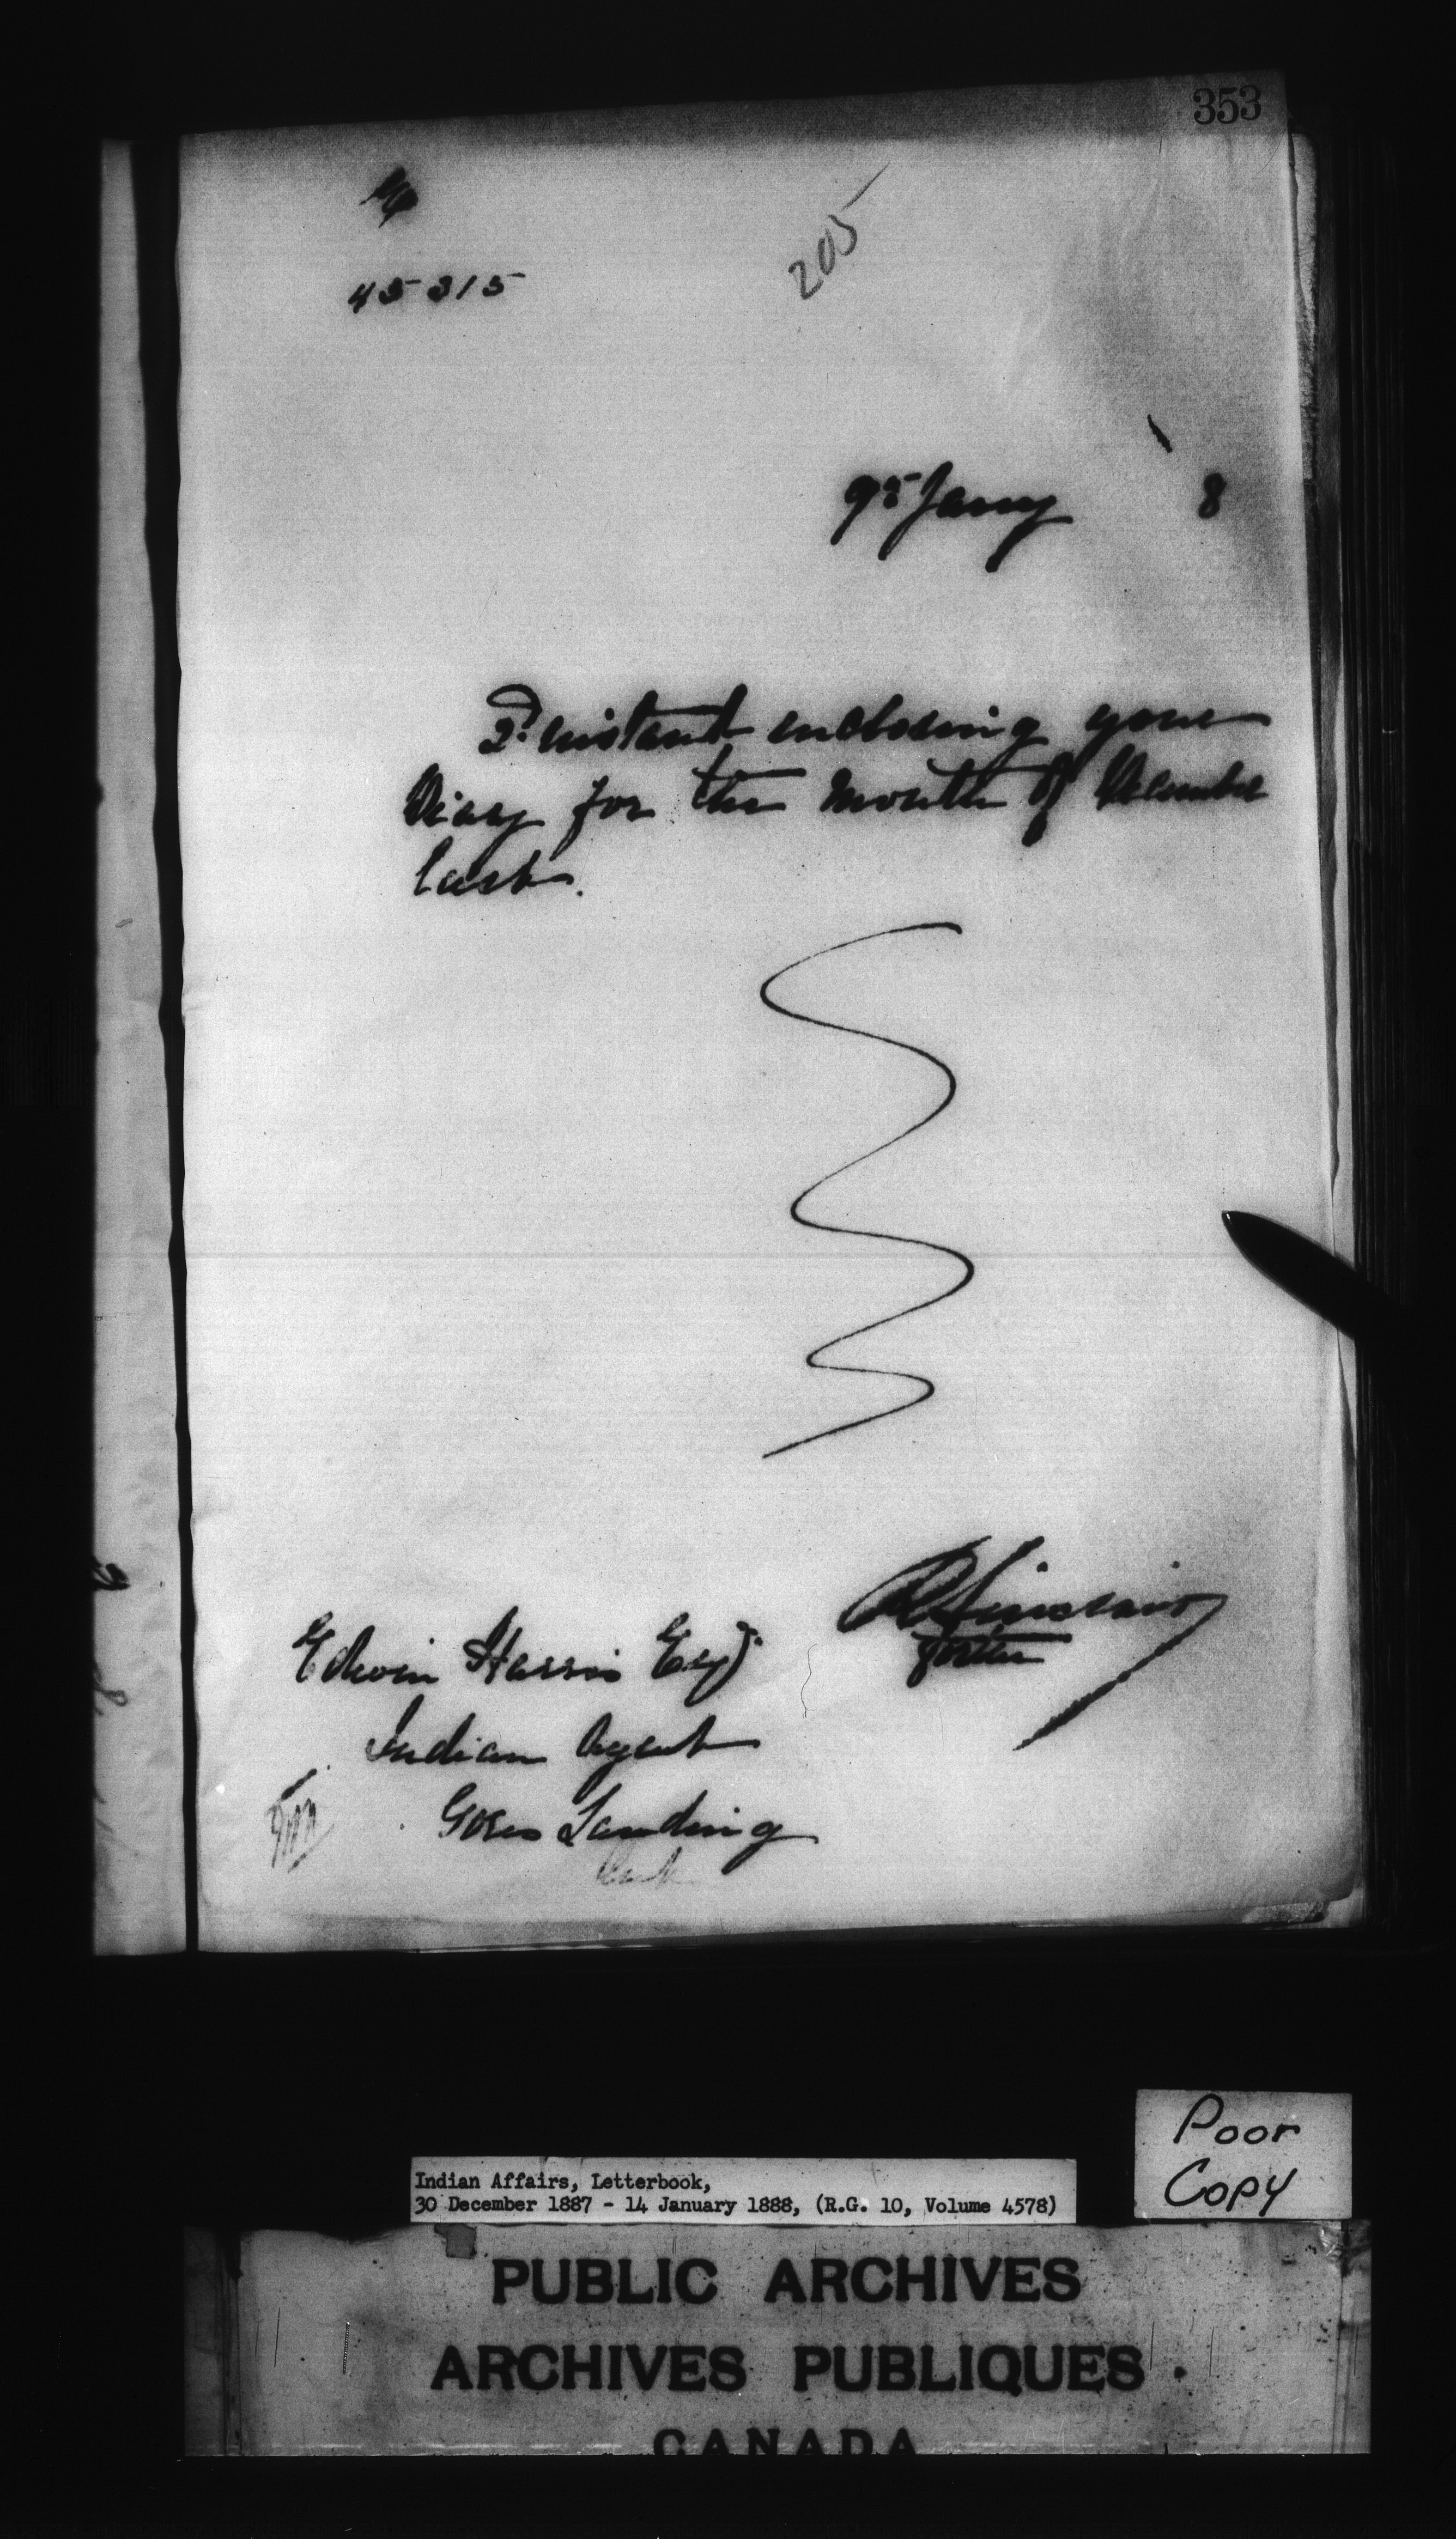 353
205
45315
9th Jany 8
2d instant enclosing your
Diary for the month of December
last.
R Sinclair
for
Edwin Harris Esqr
Indian Agent
Gores Landing
Ont
Poor
Copy
Indian Affairs, Letterbook,
30 December 1887 - 14 January 1888, (R.G. 10, Volume 4578)
PUBLIC ARCHIVES
ARCHIVES PUBLIQUES
CANADA